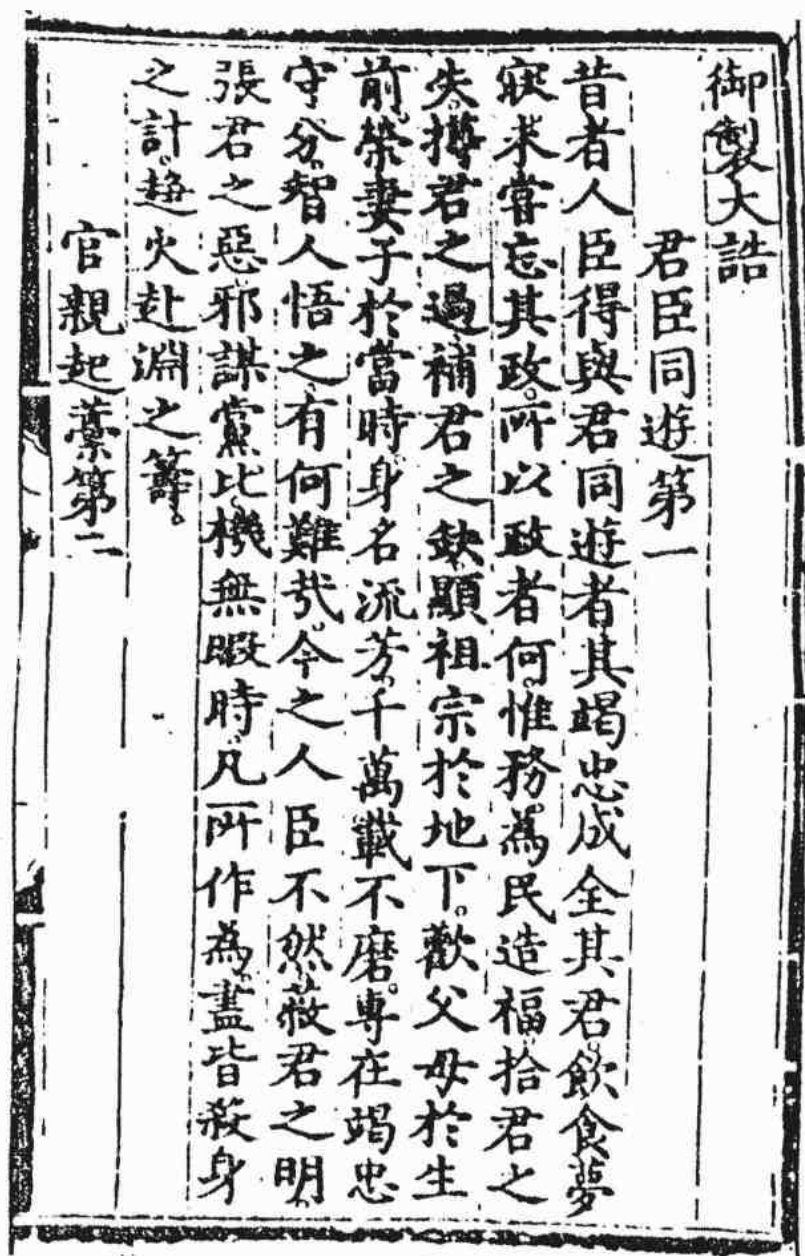 御製大誥
君臣同遊第一
昔者人臣得與君同遊者其竭忠成全其君。飲食夢
寐未嘗忘其政。所以政者何。惟務為民造福拾君之
失。撙君之過。補君之缺。顯祖宗於地下。歡父母於生
前。榮妻子於當時。身名流芳。千萬載不磨。專在竭忠
守分。智人悟之。有何難哉。今之人臣不然。蔽君之明。
張君之惡。邪謀黨比。機無暇時。凡所作為。盡皆殺身
之計。趨火赴淵之籌。
官親起藁第二